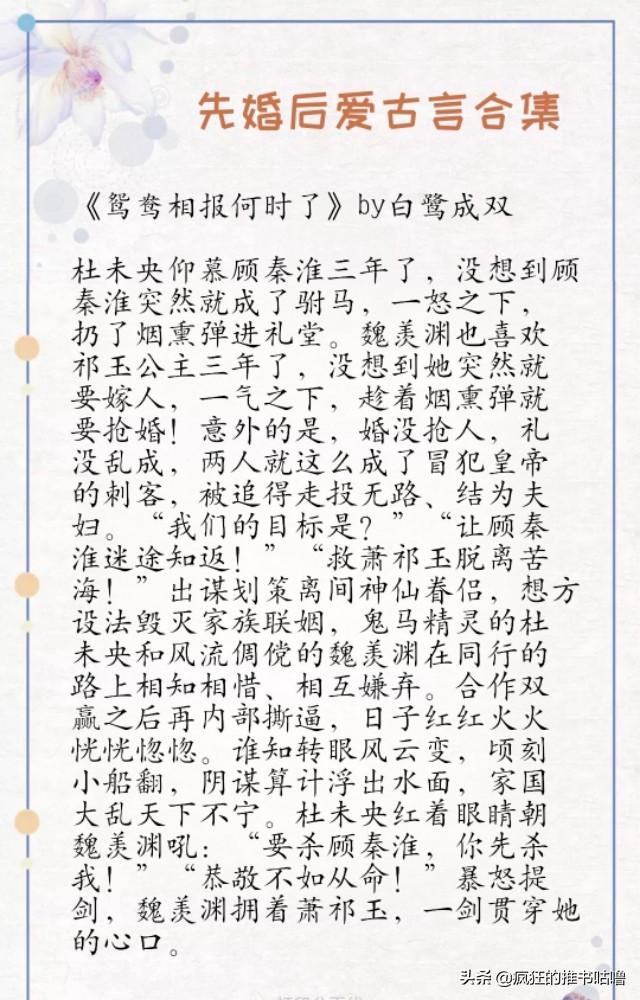 先婚后爱古言合集
《鸳鸯相报何时了》by白鹭成双
杜未央仰慕顾秦淮三年了，没想到顾
秦淮突然就成了驸马，一怒之下，
扔了烟熏弹进礼堂。魏羡渊也喜欢
祁玉公主三年了，没想到她突然就
要嫁人，一气之下，趁着烟熏弹就
要抢婚！意外的是，婚没抢人，礼
没乱成，两人就这么成了冒犯皇帝
的刺客，被追得走投无路、结为夫
妇。“我们的目标是？”“让顾秦
淮迷途知返！”“救萧祁玉脱离苦
海！”出谋划策离间神仙眷侣，想方
设法毁灭家族联姻，鬼马精灵的杜
未央和风流倜傥的魏羡渊在同行的
路上相知相惜、相互嫌弃。合作双
赢之后再内部撕逼，日子红红火火
恍恍惚惚。谁知转眼风云变，顷刻
小船翻，阴谋算计浮出水面，家国
大乱天下不宁。杜未央红着眼睛朝
魏羡渊吼：“要杀顾秦淮，你先杀
我！”“恭敬不如从命！”暴怒提
剑，魏羡渊拥着萧祁玉，一剑贯穿她
的心口。
头条 @疯狂的推书咕噜